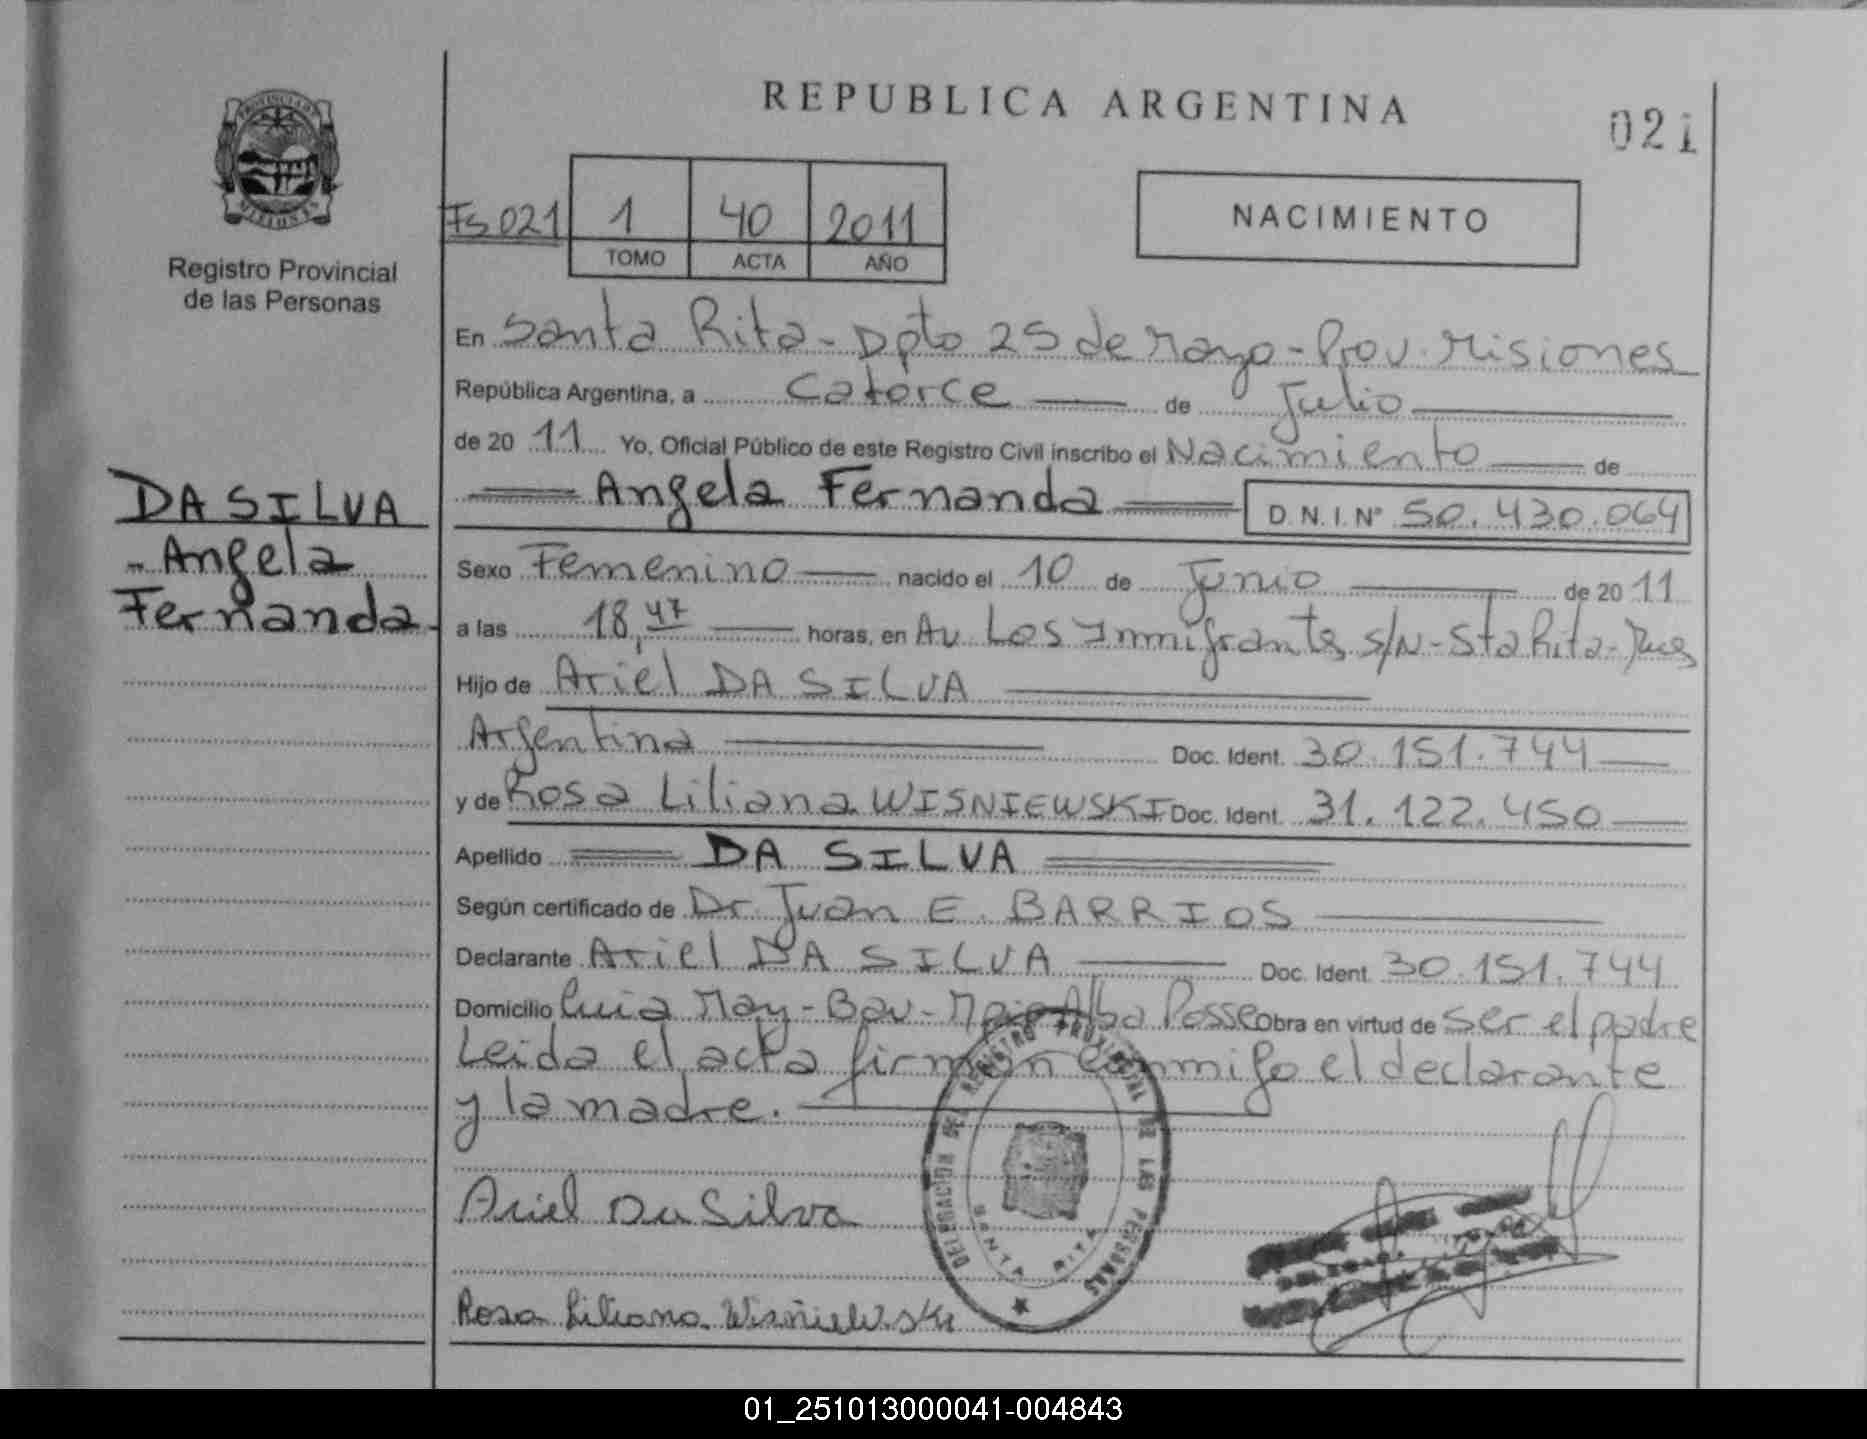 REPUBLICA ARGENTINA
021
PROVINCIA DE
MISIONES
Registro Provincial
de las Personas
Fs 021
1 40 2011
TOMO ACTA AÑO
NACIMIENTO
En Santa Rita - Dpto 25 de Mayo - Prov. Misiones
República Argentina, a Catorce de Julio
de 20 11 Yo, Oficial Público de este Registro Civil inscribo el Nacimiento de
Angela Fernanda D.N.I. Nº 50.430.064
DA SILVA
Angela
Fernanda
Sexo Femenino nacido el 10 de Junio de 20 11
a las 18,47 horas, en Av Los Immigrantes s/N - Sta Rita - Mnes
Hijo de Ariel DA SILVA
Argentina Doc. Ident. 30.151.744
y de Rosa Liliana WISNIEWSKI Doc. Ident. 31.122.450
Apellido DA SILVA
Según certificado de Dr. Juan E. BARRIOS
Declarante Ariel DA SILVA Doc. Ident. 30.151.744
Domicilio May - Alba Posse Obra en virtud de ser el padre
Leida el acta firman conmigo el declarante
y la madre.
DELEGACION DEL REGISTRO PROVINCIAL DE LAS PERSONAS
SANTA RITA
Ariel Da Silva
Rosa Liliana Wisniewski
01_251013000041-004843